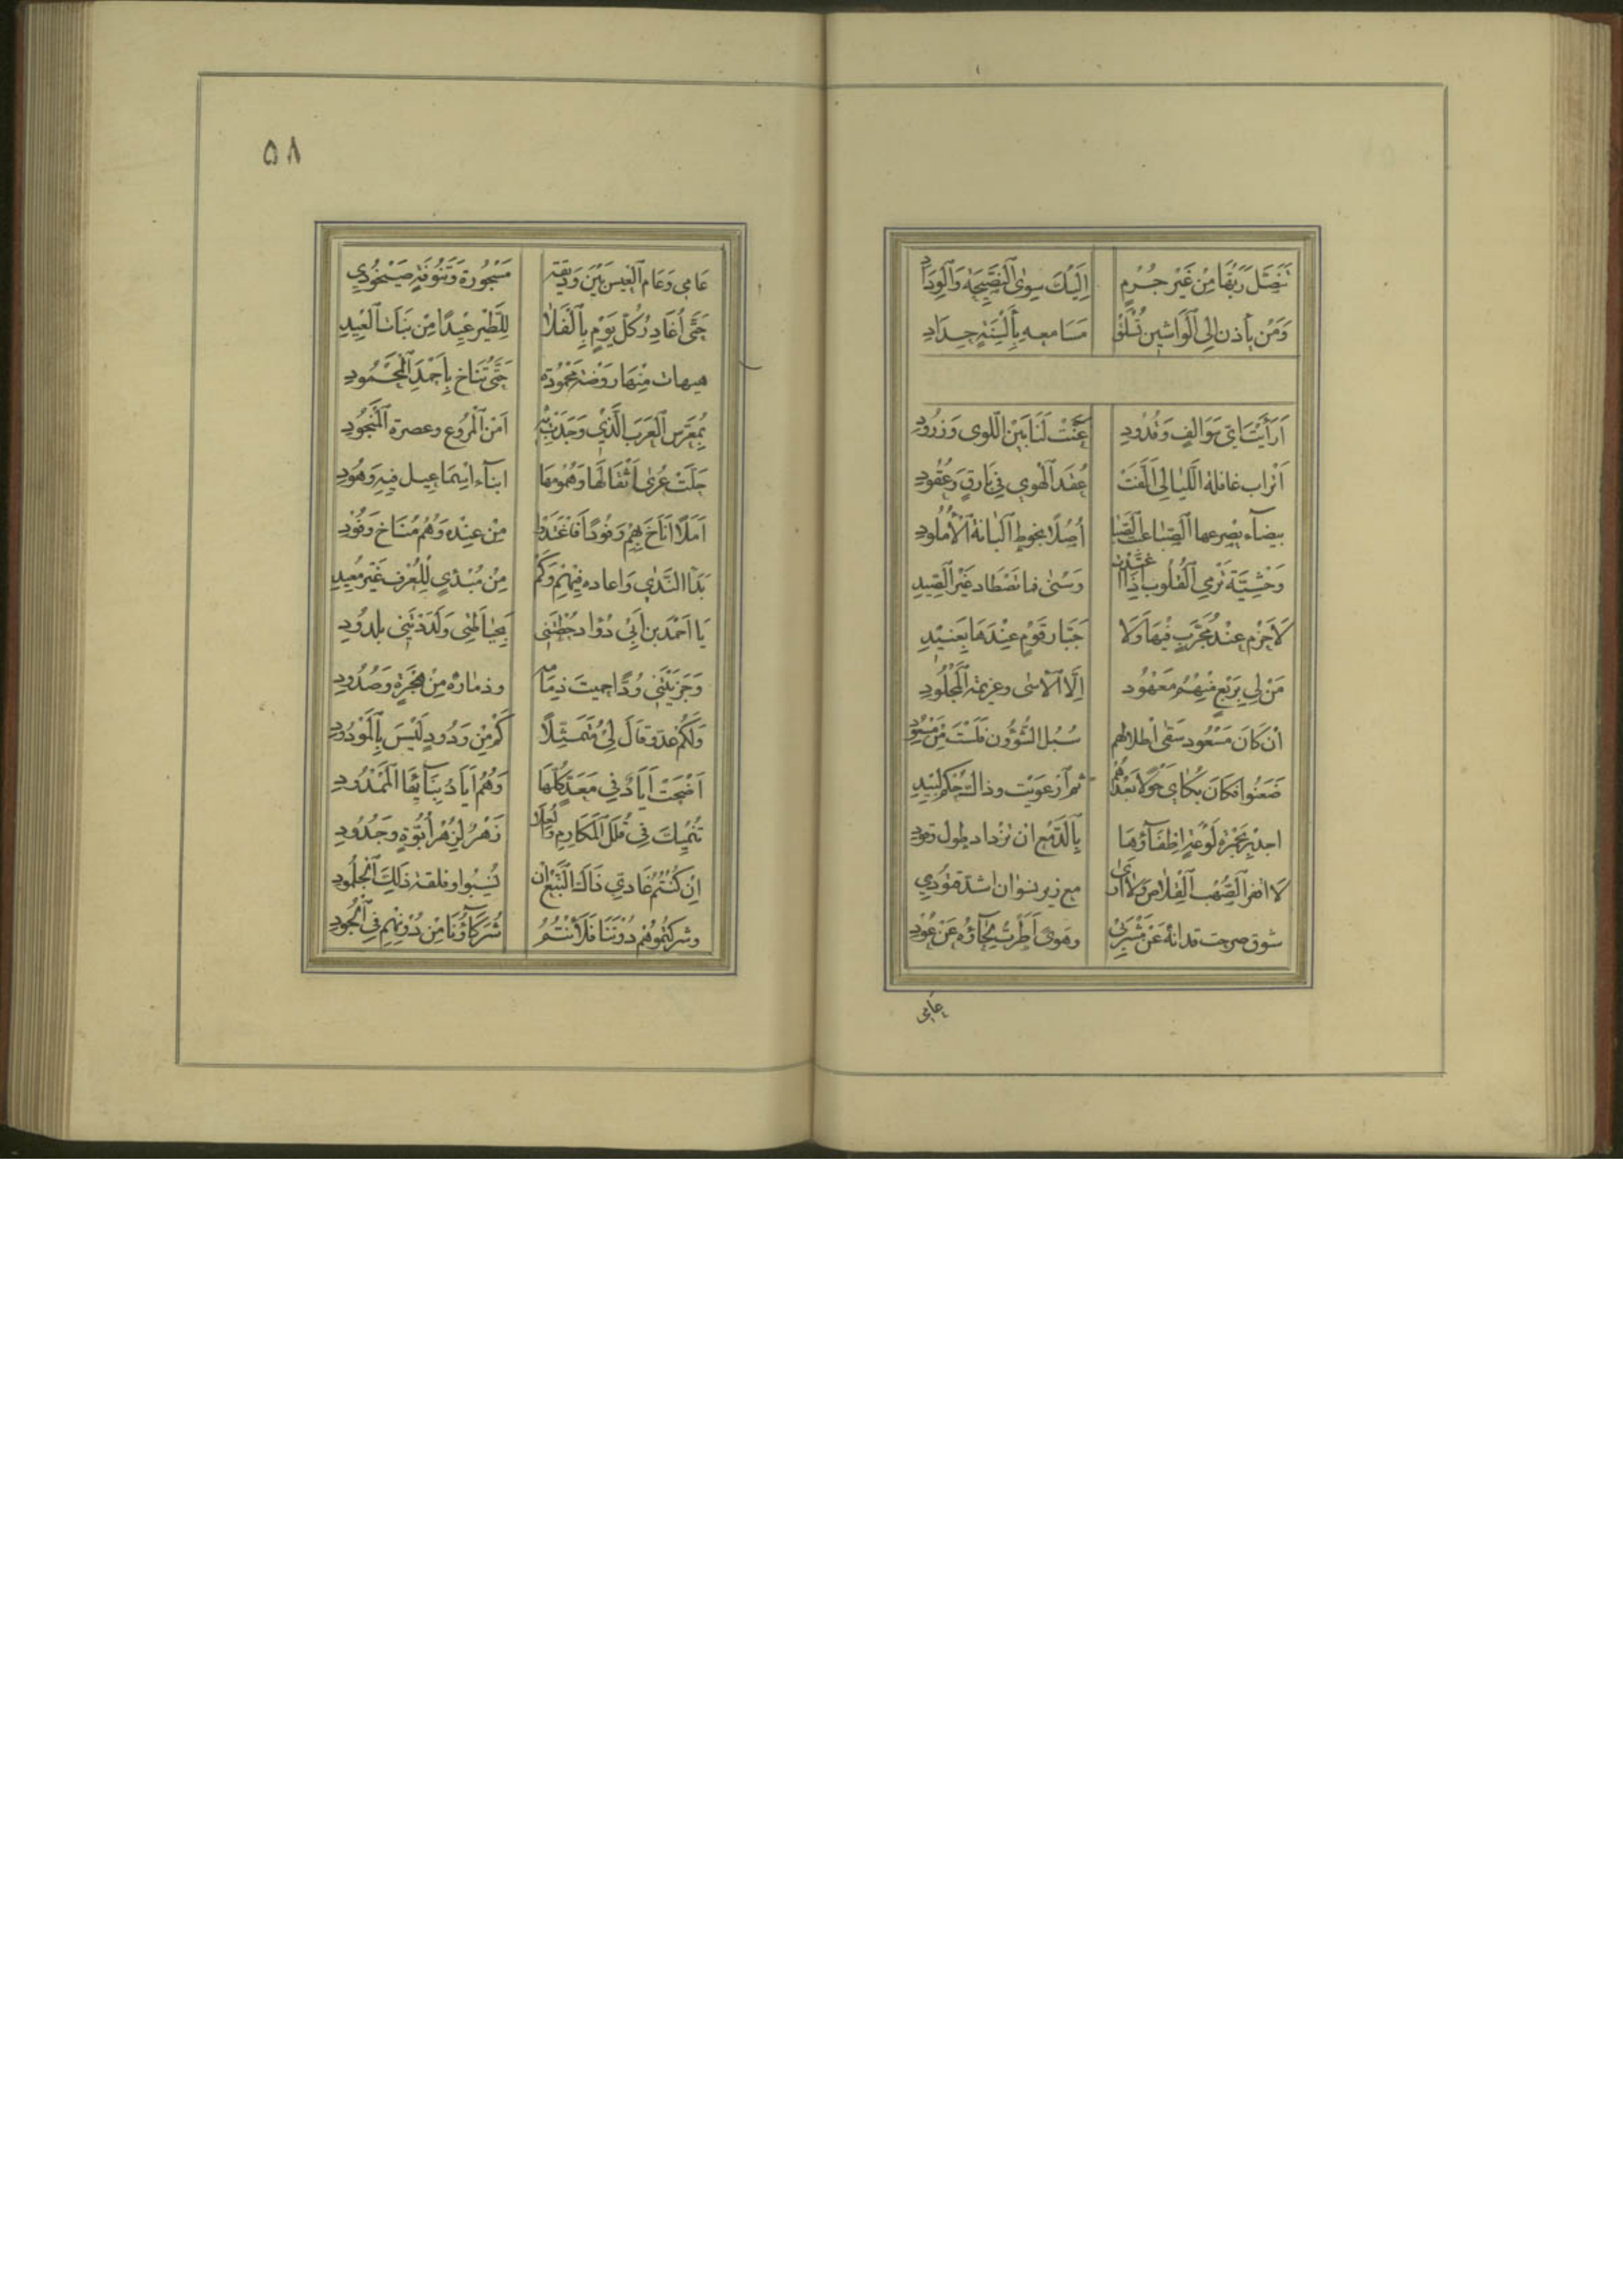 تَنَصَّلَ رَبُّهَا مِنْ غَيْرِ جُرْمٍ اِلَيْكَ سِوَى النَّصِيحَةِ وَالْوِدَادِ
وَمَنْ يأذن اِلَى الْوَاشِينَ تُسْلَقْ مَسَامعه بِأَلْسِنَةٍ حِدَادِ
اَرَأَيْتَ اَيّ سَوَالِفٍ وَخُدُودِ عَنَّتْ لَنَا بَيْنَ اللّوى وَزَرُودِ
اَتْراب غافلة اللَّيالِى اَلَّفَتْ عُقَدَ الْهَوى فِي يَارَقٍ وَعُقُودِ
بيضآء يصْرعها الصّبا عبث الصَّبا أُصُلًا بخوطِ الْبَانَةِ الْاُمْلُودِ
وَحْشِيَّةٌ تَرْمِي الْقُلُوب اِذَا اغْتَدَتْ وَسْنى فما تصْطاد غَيْرَ الصِّيدِ
لَاحَزْم عِنْدَ مُجَرِّبٍ فِيْهَا وَلَا جَبَّار قَوْمٍ عِنْدَهَا بِعَنِيْدِ
مَنْ لِي بِرَبْعٍ مِنْهُمُ مَعْهُودِ اِلَّا الْاَسٰى وعزيمة الْمَجْلُودِ
اَنْ كَانَ مَسْعُود سَقٰى اَطْلالهم سُبُل الشُّؤُون فَلَسْتُ مِنْ مَسْعُودِ
ضَعَنُوا فكَانَ بُكَاىَ حَوْلًا بَعْدَهُمْ ثم اَرْعَوَيْت وذاك حُكم لَبِيْدِ
اجدِرْ بِجَمْرَةِ لَوْعَةٍ اِطْفَآؤُهَا بِالدَّمْعِ ان تزداد طول وقود
لَا افقر الصُّهْب الْقِلاص وَلَا ارى مع زير نسوان اشد قتُودِي
شوق صرحت قذاته عَنْ مَشْرَبى وهَوىً اَطَرْتُ لِحَاؤه عَنْ عُوْدِى
عَامِى
۵۸
عَامِى وَعَام الْعِيسِ بَيْنَ وَدِيْقَةٍ مَسْجُورة وَتَنُوفَةٍ صَيْخُودِ
حَتّٰى أُغَادِرَ كُلّ يَوْمٍ بِالْفَلَا لِلطَّيْرِ عِيْدًا مِنْ بَنَات الْعِيْدِ
هيهات مِنْهَا رَوْضَة مَحْمُودَة حَتّٰى تُنَاخ بِاَحْمَدَ الْمَحْمُودِ
بِمُعَرَّس الْعَرَبِ الَّذِي وَجَدَتْ بِهِ اَمْنَ الْمُرُوعِ وعصرة الْمَنْجُودِ
حَلَّتْ عُرٰى اَثْقَالِهَا وَهُمُومِهَا ابنآء اِسْمَاعِيل فِيهِ وَهُودِ
اَمَلًا اَنَاخَ بِهِمْ وَفُودًا فَاغْتَدَوْا مِنْ عِنْدِه وَهُمْ مُنَاخ وَفُوْدِ
بَدَأَ النَّدٰى وَاعاده فِيْهِمْ وَكَمْ مِنْ مُبْدِئٍ لِلْعُرْفِ غَيْرَ مُعِيدِ
يَا اَحْمَد بن اَبِي دُؤاد حُطْتَنِى بِحِيَاطَتِى وَلَدَدْتَنِى بلدُوْدِ
وَجَزَيْتَنِى وُدًّا حميتَ ذِمَامَهُ وذماره مِنْ هِجْرَةٍ وَصُدُودِ
وَلَكَمْ عدو قَالَ لِىْ مُتَمَثِّلًا كَمْ مِنْ وَدُودٍ لَيْسَ بِالْمَوْدُودِ
اَضْحَتْ اَيَاد فِي مَعَدٍّ كُلِّهَا وَهُمُ اَيَاد بِنَآئِهَا الْمَمْدُودِ
تُنْمِيكَ فِى قُلَلِ الْمَكَارِمِ وَالْعُلَا زُهْر لِزُهْر اُبُوَّةٍ وَجُدُودِ
اِنْ كُنْتُمُ عَادِيّ ذَاكَ النَّبْع اِنْ نُسِبُوا وفلقة ذٰلِكَ الْجُلْمُودِ
وشركتمُوهُمْ دُوْنَنَا فَلَأَنْتُمُ شُرَكَآؤُنَا مِنْ دُوْنِهِمْ فِى الْجُودِ